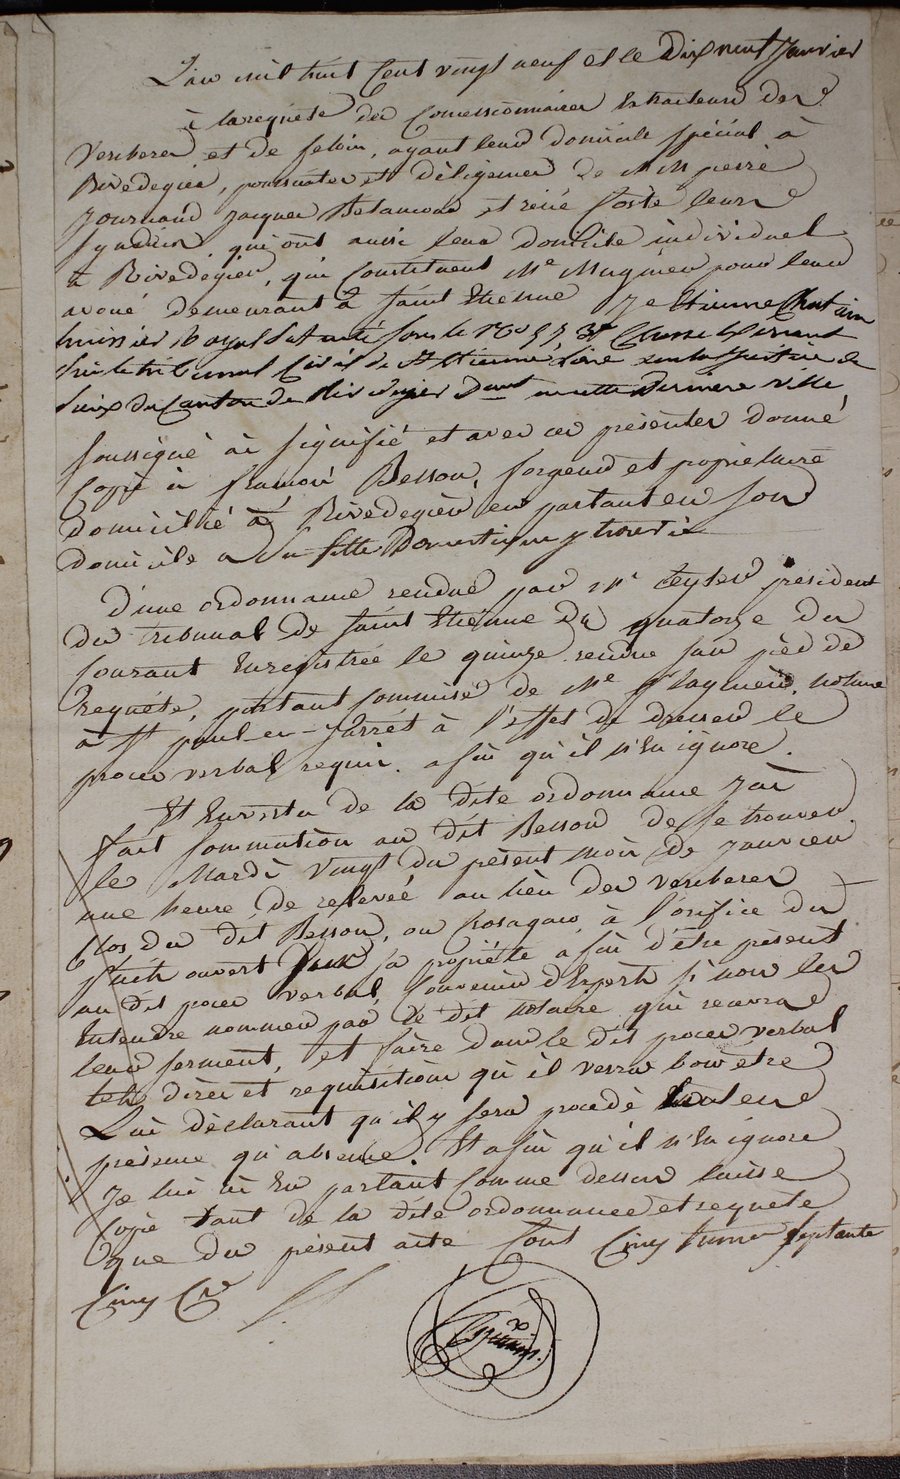 L'an mil huit Cent vingt neuf et le Dix neuf Janvier
à la requête des Concessionnaires Extracteurs des
Verchères et de feloin, ayant leur domicile spécial à
Rivedegier, poursuites et diligences de MM pierre
Journoud Jacques et réné Coste leurs
syndics qui ont aussi leur domicile individuel
à Rivedegier, qui Constituent Me Mugnier pour leur
avoué demeurant à Saint Etienne Je Etienne
huissier Royal patenté sous le no Classe
près le tribunal Civil de St Etienne, et en la justice de
paix du Canton de Rivedegier Demt en cette Dernière ville
soussigné ai signifié et avec ces présentes donné
Copie à françois Besson, forgeur et propriétaire
domicilié à Rivedegier en parlant en son
domicile a Sa fille Domestique y trouvée
D'une ordonnance rendue par Mr teyter président
du tribunal de Saint Etienne du quatorze du
Courant Enregistrée le quinze rendue sur pied de
Requête, portant Commise de Me notaire
à St paul-en-Jarret à l'effet de dresser le
procès verbal requis. afin qu'il n'En ignore.
Et Envertu de la dite ordonnance J'ai
fait sommation au dit Besson de se trouver
le Mardi Vingt du présent mois de Janvier
une heure de relevée au lieu des verchères
Clos du dit Besson, ou à l'orifice du
puits ouvert dans sa propriété afin d'être présent
au dit procès verbal, Convenir d'Experts si non les
Entendre nommer par le dit notaire qui recevra
leur serment, et faire dans le dit procès verbal
tels dires et réquisitions qu'il verra bon être
Lui déclarant qu'il y sera procédé tant en
présence qu'absence. Et afin qu'il n'En ignore
Je lui ai En parlant Comme dessus laissé
Copie tant de la dite ordonnance et requête
que du présent acte Cout Cinq francs septante
Cinq Ces